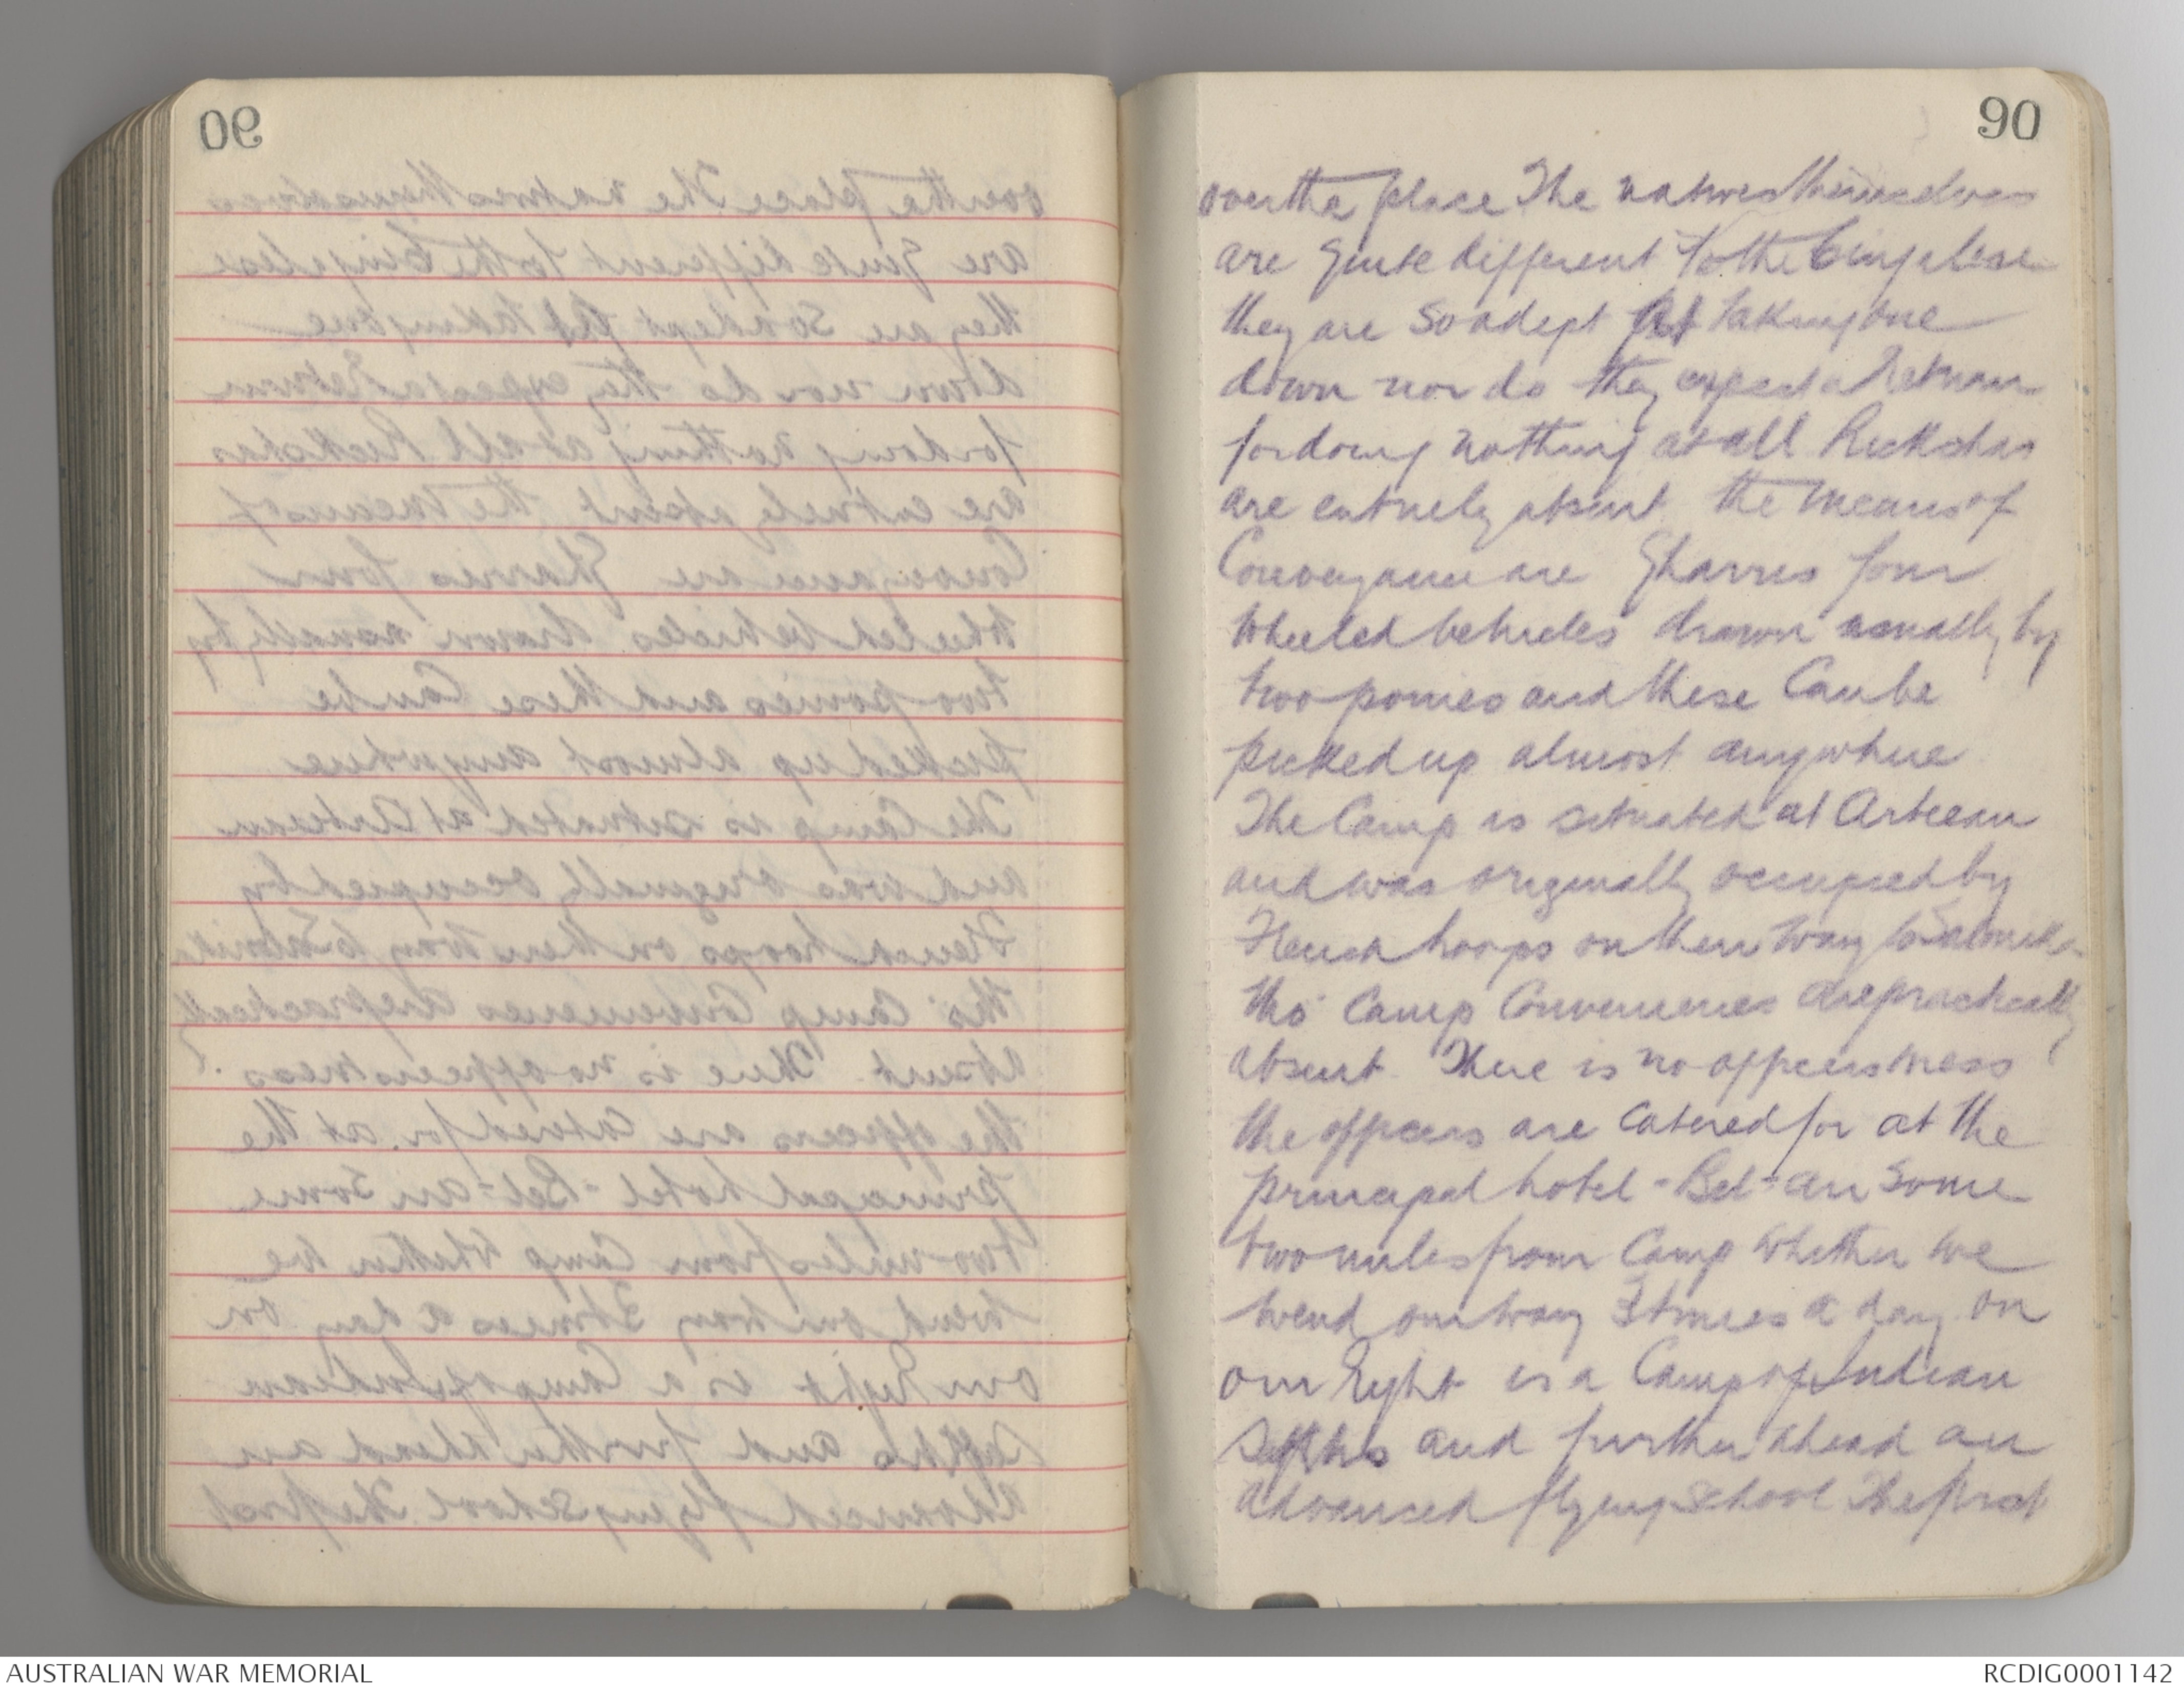 90
over the place The natives themselves
are quite different to the Cingalese
they are so adept at taking one
down nor do they expect a return
for doing nothing at all Rickshas
are entirely absent the means of
Conveyance are Gharris four
wheeled vehicles drawn usually by
two ponies and these Can be
picked up almost anywhere
The Camp is situated at
and was originally occupied by
French troops on their way to
tho' Camp Conveniences are practically
absent. There is no officers mess
the officers are Catered for at the
principal hotel - Bel-air some
two miles from Camp whither we
wend our way 3 times a day on
our right is a Camp of Indian
and further ahead an
advanced flying school The first
AUSTRALIAN WAR MEMORIAL
RCDIG0001142